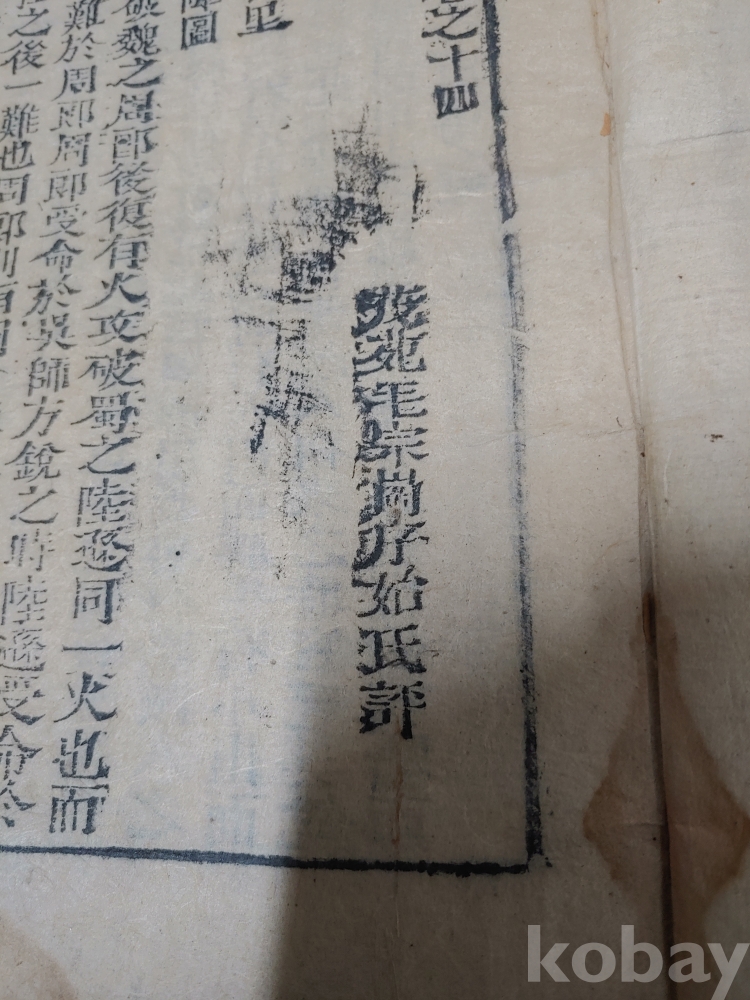 之十四
茂苑毛宗崗序始氏評
里
陣圖
破魏之周郎後復有火攻破蜀之陸遜同一火也而
難於周郎周郎受命於吳師方銳之時陸遜受命於
之後一難也周郎則
kobay